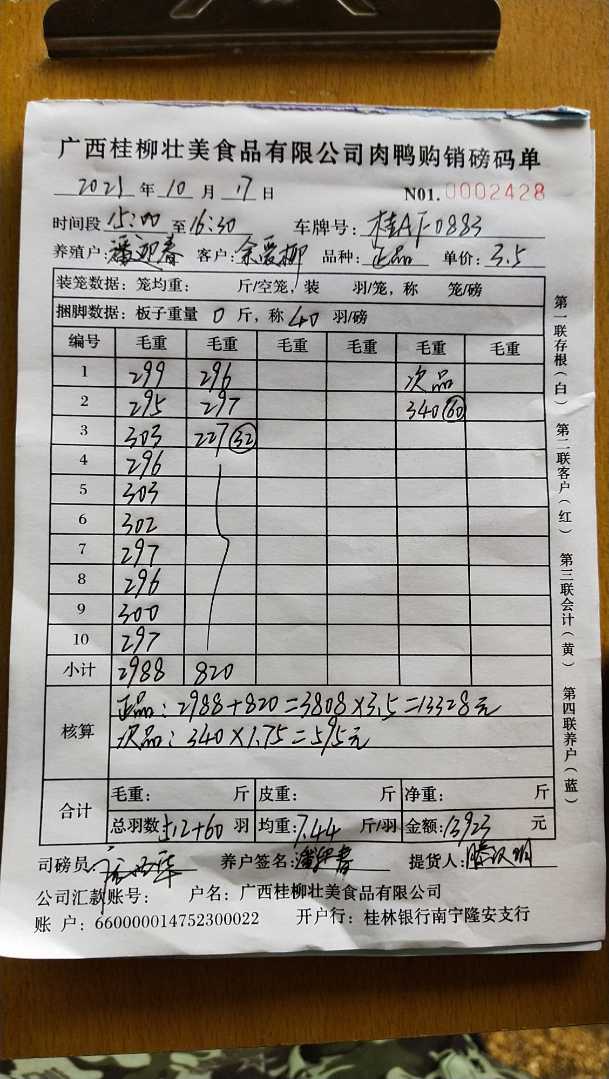 广西桂柳壮美食品有限公司肉鸭购销磅码单
2025 年 10 月 17 日 N01.0002428
时间段 15:00 至 16:30 车牌号: 桂AF0883
养殖户: 潘迎春 客户: 余爱柳 品种: 正品 单价: 3.5
装笼数据: 笼均重: 斤/空笼, 装 羽/笼, 称 笼/磅
捆脚数据: 板子重量 0 斤, 称 40 羽/磅
编号 毛重 毛重 毛重 毛重 毛重 毛重
1 299 296 次品
2 295 297 340 60
3 303 227 32
4 296
5 303
6 302
7 297
8 296
9 300
10 297
小计 2988 820
核算 正品: 2988+820=3808×3.5=13328元
次品: 340×1.75=595元
合计 毛重: 斤 皮重: 斤 净重: 斤
总羽数 512+60 羽 均重: 7.44 斤/羽 金额: 13923 元
司磅员 养户签名: 潘迎春 提货人:
公司汇款账号: 户名: 广西桂柳壮美食品有限公司
账 户: 660000014752300022 开户行: 桂林银行南宁隆安支行
第一联存根(白) 第二联客户(红) 第三联会计(黄) 第四联养户(蓝)